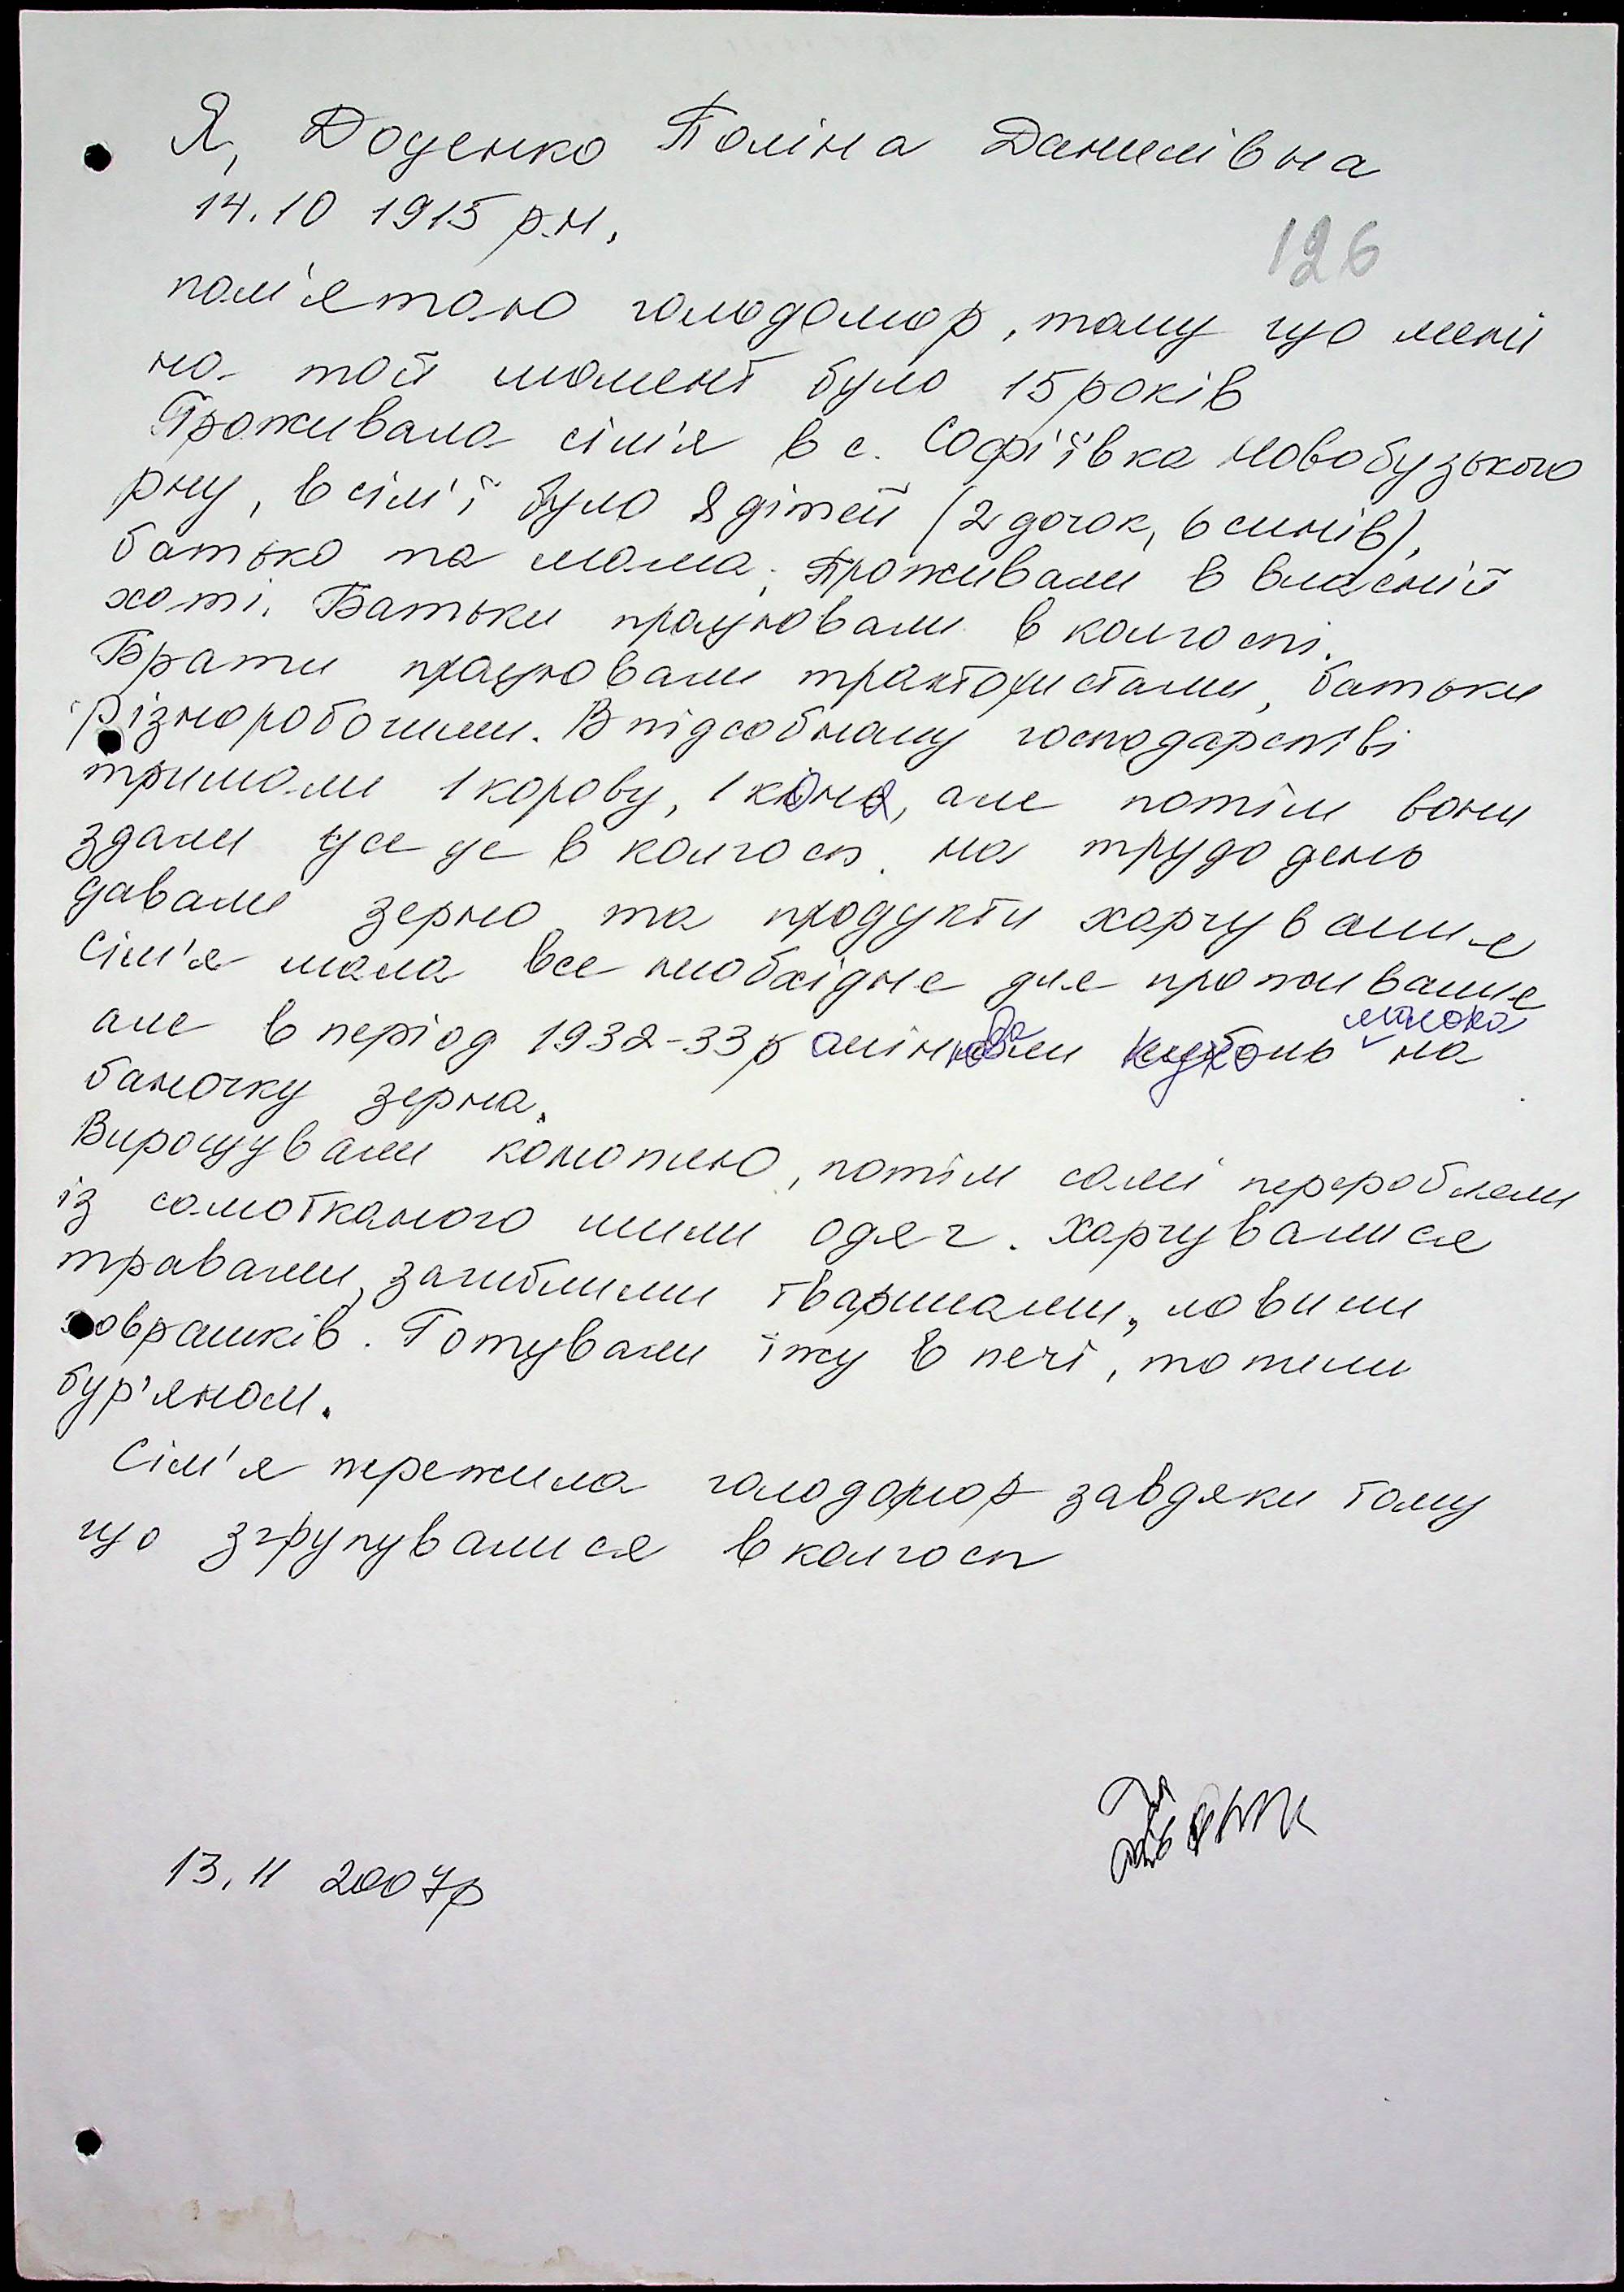 Я, Доценко Поліна Данилівна
14.10 1915 р.н,
126
пам'ятаю голодомор, тому що мені
на той момент було 15 років
Проживала сім'я в с. Софіївка Новобузького
р-ну, в сім'ї було 8 дітей (2 дочок, 6 синів),
батько та мама. Проживали в власній
хаті. Батьки працювали в колгоспі.
Брати працювали трактористами, батьки
різноробочими. В підсобному господарстві
тримали 1 корову, 1 коня, але потім вони
здали усе це в колгосп. на трудодень
давали зерно та продукти харчування
Сім'я мала все необхідне для проживання
але в період 1932-33 р міняли кухоль молока на
баночку зерна.
Вирощували коноплю, потім самі переробляли
із самотканого шили одяг. Харчувалися
травами, загиблими тваринами, ловили
ховрашків. Готували їжу в печі, топили
бур'яном.
Сім'я пережила голодомор завдяки тому
що згрупувалися в колгосп
13.11 2007р